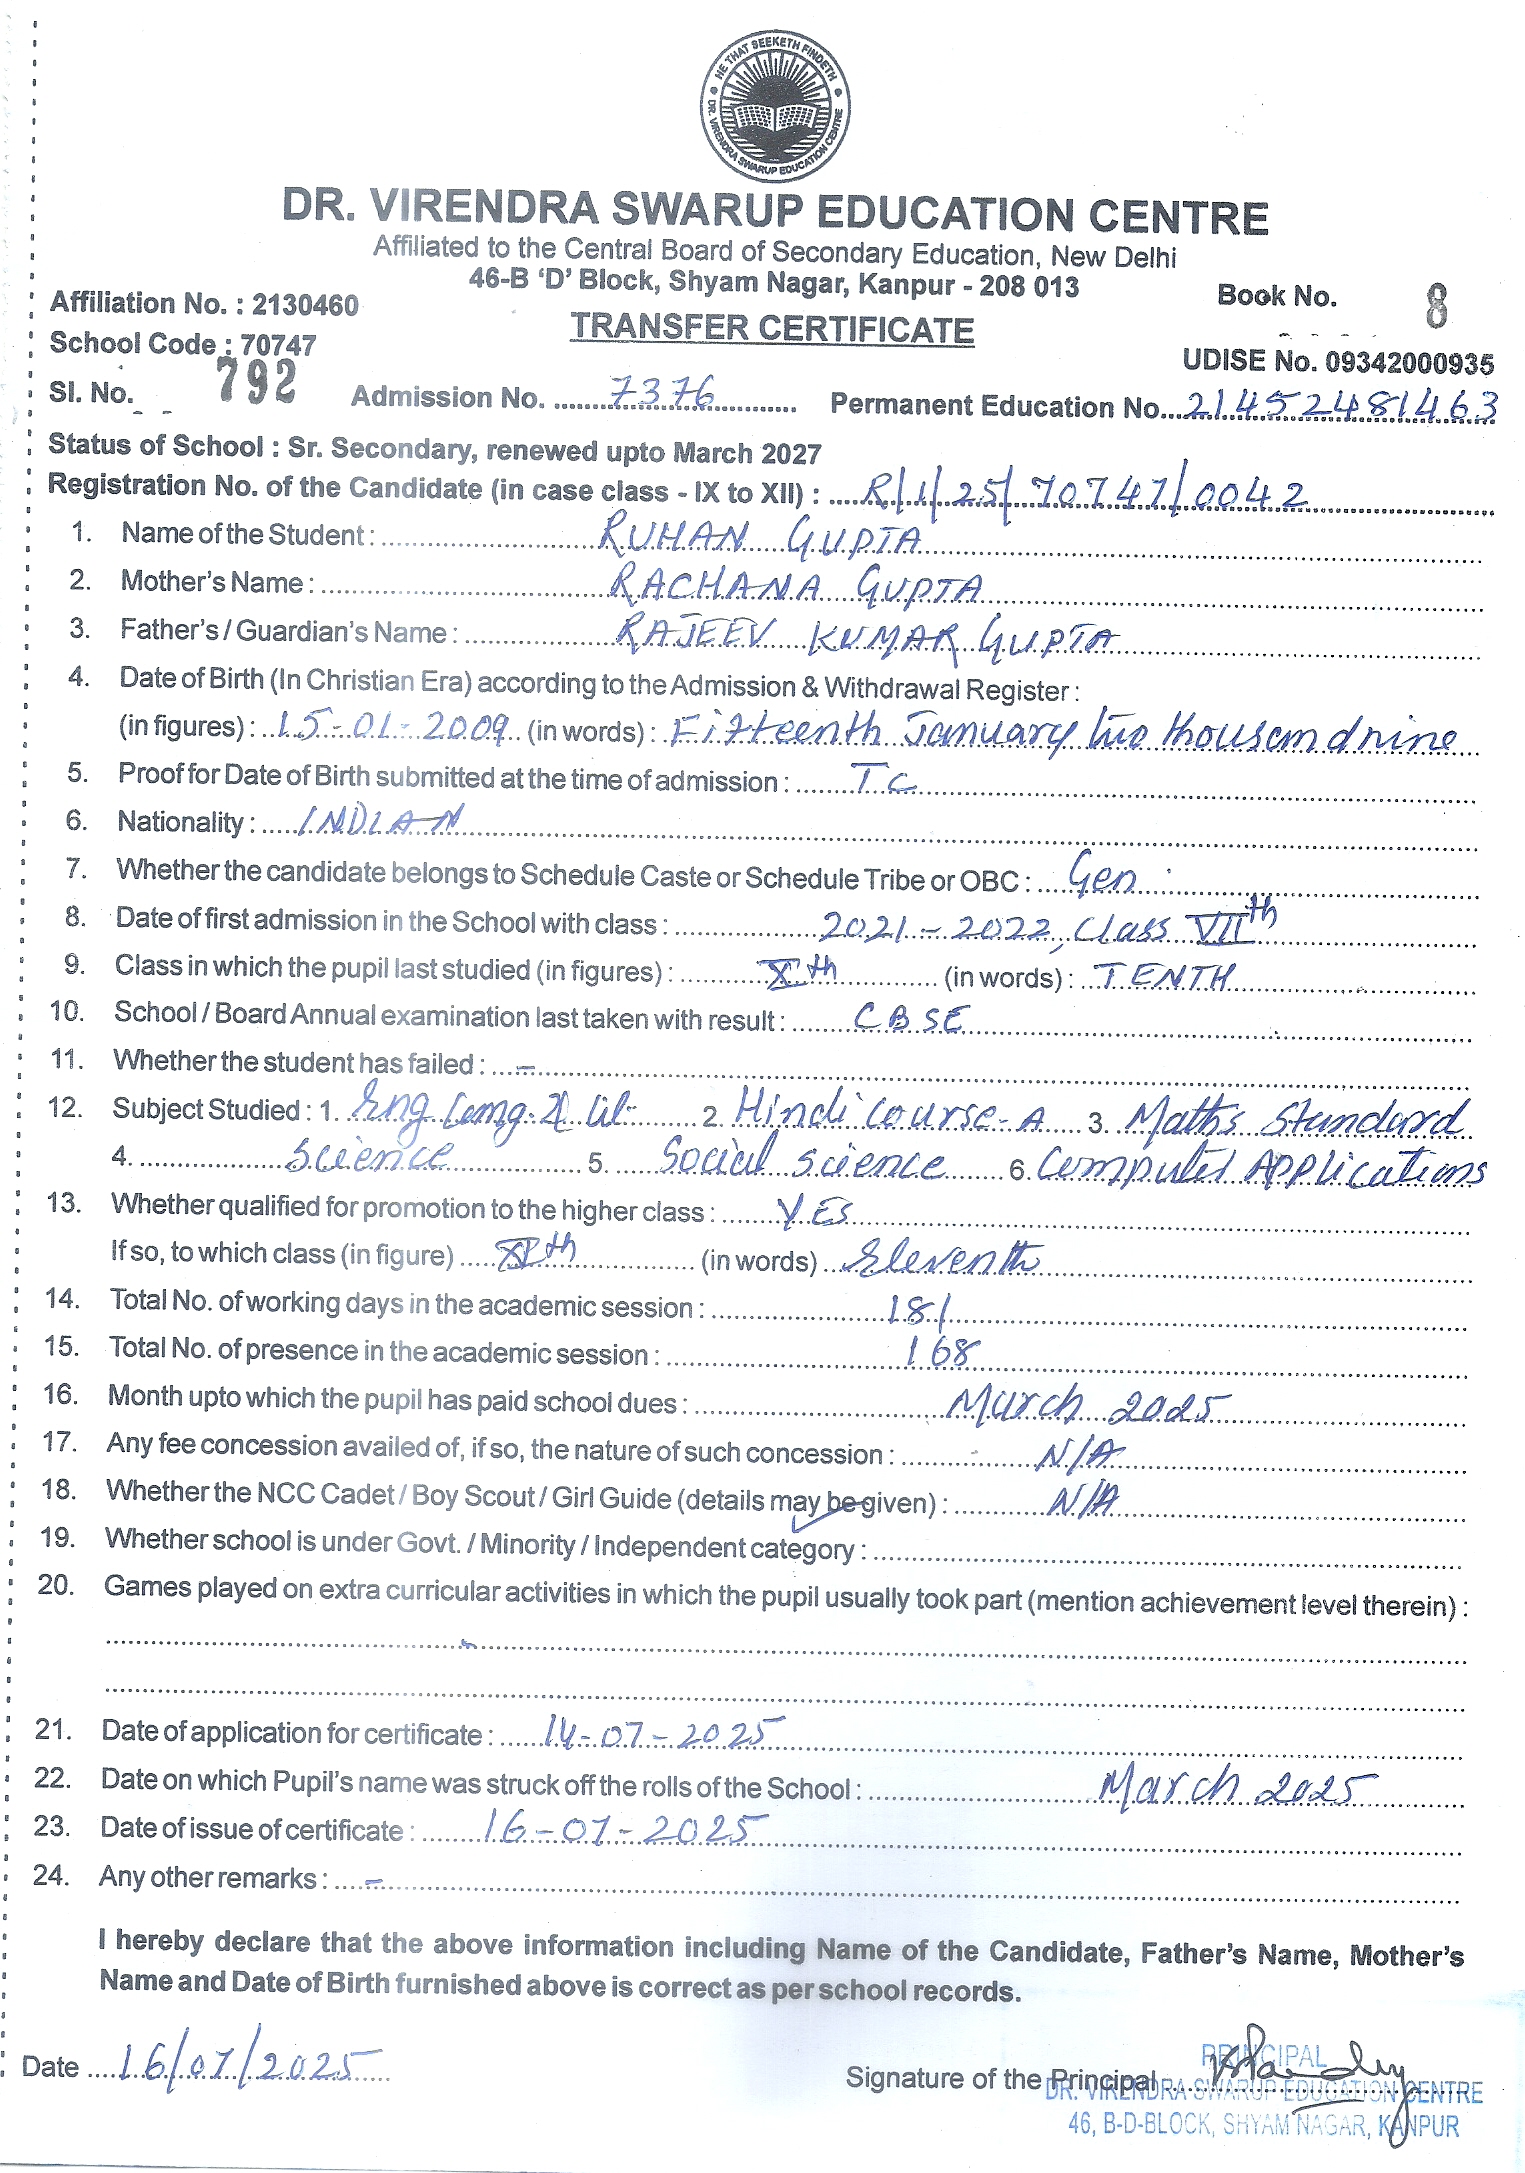 HE THAT SEEKETH FINDETH
DR. VIRENDRA SWARUP EDUCATION CENTRE
DR. VIRENDRA SWARUP EDUCATION CENTRE
Affiliated to the Central Board of Secondary Education, New Delhi
46-B 'D' Block, Shyam Nagar, Kanpur - 208 013
Affiliation No. : 2130460
Book No. 8
TRANSFER CERTIFICATE
School Code : 70747
UDISE No. 09342000935
Sl. No. 792 Admission No. 7376 Permanent Education No. 21452481463
Status of School : Sr. Secondary, renewed upto March 2027
Registration No. of the Candidate (in case class - IX to XII) : R/1/25/70747/0042
1. Name of the Student : RUHAN GUPTA
2. Mother's Name : RACHANA GUPTA
3. Father's / Guardian's Name : RAJEEV KUMAR GUPTA
4. Date of Birth (In Christian Era) according to the Admission & Withdrawal Register :
(in figures) : 15-01-2009 (in words) : Fifteenth January two thousand nine
5. Proof for Date of Birth submitted at the time of admission : T.C
6. Nationality : INDIAN
7. Whether the candidate belongs to Schedule Caste or Schedule Tribe or OBC : Gen
8. Date of first admission in the School with class : 2021-2022, Class VIIth
9. Class in which the pupil last studied (in figures) : Xth (in words) : TENTH
10. School / Board Annual examination last taken with result : CBSE
11. Whether the student has failed : -
12. Subject Studied : 1. Eng Lang. & Lit. 2. Hindi Course-A 3. Maths Standard
4. Science 5. Social Science 6. Computer Applications
13. Whether qualified for promotion to the higher class : YES
If so, to which class (in figure) XIth (in words) Eleventh
14. Total No. of working days in the academic session : 181
15. Total No. of presence in the academic session : 168
16. Month upto which the pupil has paid school dues : March 2025
17. Any fee concession availed of, if so, the nature of such concession : N/A
18. Whether the NCC Cadet / Boy Scout / Girl Guide (details may be given) : N/A
19. Whether school is under Govt. / Minority / Independent category :
20. Games played on extra curricular activities in which the pupil usually took part (mention achievement level therein) :
21. Date of application for certificate : 14-07-2025
22. Date on which Pupil's name was struck off the rolls of the School : March 2025
23. Date of issue of certificate : 16-07-2025
24. Any other remarks : -
I hereby declare that the above information including Name of the Candidate, Father's Name, Mother's
Name and Date of Birth furnished above is correct as per school records.
Date 16/07/2025
Signature of the Principal
PRINCIPAL
DR. VIRENDRA SWARUP EDUCATION CENTRE
46, B-D-BLOCK, SHYAM NAGAR, KANPUR